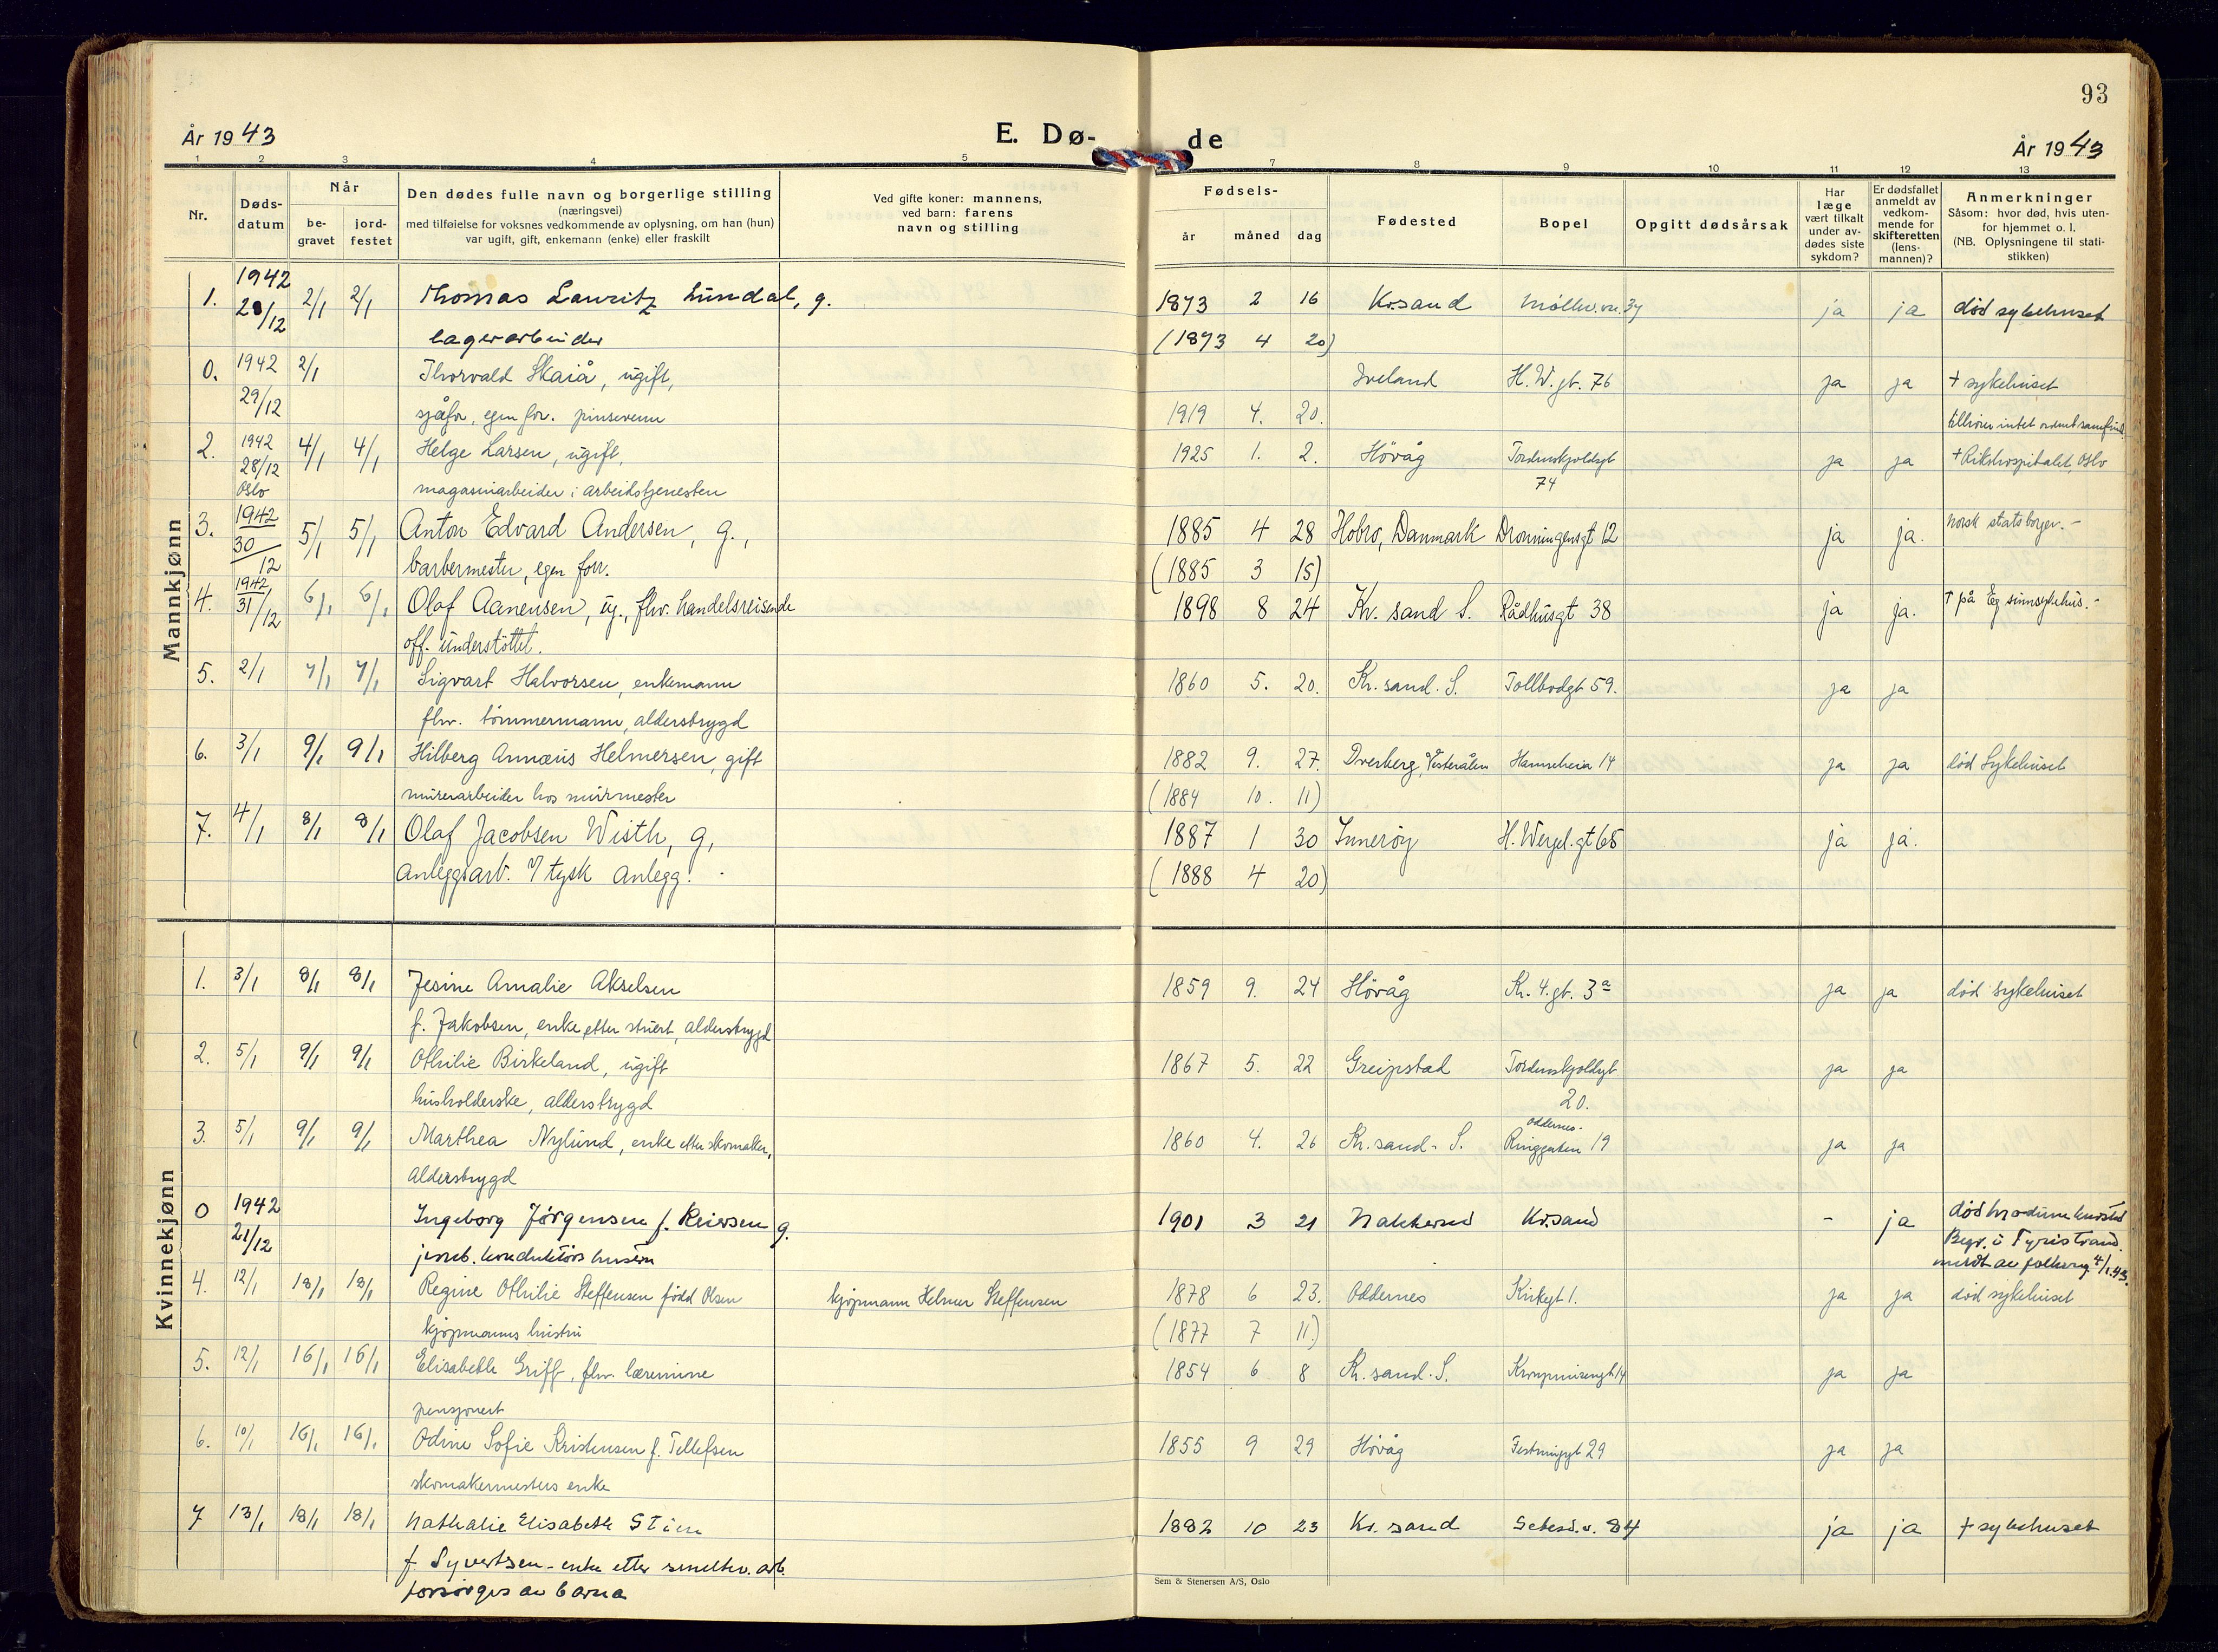 93
År 1943
E. Dø-
de
År 1943
1 2 3 4 5 7 8 9 10 11 12 13
Nr.
Døds-
datum
Når
be-
gravet
jord-
festet
Den dødes fulle navn og borgerlige stilling
(næringsvei)
med tilføielse for voksnes vedkommende av oplysning, om han (hun)
var ugift, gift, enkemann (enke) eller fraskilt
Ved gifte koner: mannens,
ved barn: farens
navn og stilling
Fødsels-
år måned dag
Fødested
Bopel
Opgitt dødsårsak
Har
læge
vært tilkalt
under av-
dødes siste
sykdom?
Er dødsfallet
anmeldt av
vedkom-
mende for
skifteretten
(lens-
mannen)?
Anmerkninger
Såsom: hvor død, hvis uten-
for hjemmet o. l.
(NB. Oplysningene til stati-
stikken)
Mannkjønn
1942
1. 28/12 2/1 2/1 Thomas Lauritz Lundal, g. 1873 2 16 Kr.sand Møllev.vn. 34 ja ja død sykehuset
lagerarbeider (1873 4 20)
0. 1942 2/1 Thorvald Skaiå, ugift, Iveland H.W.gt. 76 ja ja + sykehuset
29/12 sjåfør, egen for. pinsevenn 1919 4. 20. tilhører intet ordnet samfund
2. 1942 4/1 4/1 Helge Larsen, ugift, 1925 1. 2. Hövåg Tordenskjoldsgt ja ja + Rikshospitalet, Oslo
28/12 74
Oslo magasinarbeider i arbeidstjenesten
3. 1942 5/1 5/1 Anton Edvard Andersen, g., 1885 4 28 Hobro, Danmark Dronningensgt 12 ja ja. Norsk statsborger. -
30/12 barbermester, egen forr. (1885 3 15)
4. 1942 31/12 6/1 6/1 Olaf Aanensen, ug., fhv. handelsreisende 1898 8 24 Kr. sand S. Rådhusgt 38 ja ja. † på Eg sinnsykehus. -
off. understöttet.
5. 2/1 7/1 7/1 Sigvart Halvorsen, enkemann 1860 5. 20. Kr. sand. S. Tollbodgt 59. ja ja
fhv. tömmermann, alderstrygd
6. 3/1 9/1 9/1 Hilberg Annæus Helmersen, gift 1882 9. 27. Dverberg, Vesterålen Hanneheia 14 ja ja död Sykehuset
murerarbeider hos murmester (1884 10. 11)
7. 4/1 8/1 8/1 Olaf Jacobsen Wisth, g, 1887 1 30 Inneröy H. Wergel.gt 68 ja ja.
Anleggsarb. v/ tysk anlegg. (1888 4 20)
Kvinnekjønn
1. 3/1 8/1 8/1 Jesine Amalie Akselsen 1859 9. 24 Hövåg Kr. 4.gt. 3a ja ja död sykehuset
f. Jakobsen, enke etter stuert, alderstrygd
2. 5/1 9/1 9/1 Othilie Birkeland, ugift 1867 5. 22 Greipstad Tordenskjoldsgt ja ja
husholderske, alderstrygd 20.
3. 5/1 9/1 9/1 Marthea Nylund, enke etter skomaker, 1860 4. 26 Kr. sand. S. Oddernes-
Ringgaten 19 ja ja
Alderstrygd
0 1942 Ingeborg Jörgensen f. Reiersen g. 1901 3 21 Nakkerud Kr.sand - ja
21/12 jernb. konduktörs hustru Begr. i Tyristrand.
4/1.43.
4. 12/1 18/1 18/1 Regine Othilie Steffensen född Olsen kjöpmann Helmer Steffensen 1878 6 23. Oddernes Kirkegt 1. ja ja död sykehuset
kjöpmanns hustru (1877 7 11.)
5. 12/1 16/1 16/1 Elisabeth Griff, fhv. lærerinne 1854 6 8 Kr. sand. S. Kronprinsensgt 14 ja ja
pensjonert
6. 10/1 16/1 16/1 Odine Sofie Kristensen f. Tellefsen 1855 9 29 Hövåg Festningsgt 29 ja ja
skomakermesters enke
7 13/1 18/1 18/1 Nathalie Elisabeth Stien 1882 10 23 Kr. sand Setesd.v. 84 ja ja + sykehuset
f. Syvertsen - enke etter smeltev. arb.
forsørges av barna
Sem & Stenersen A/S, Oslo